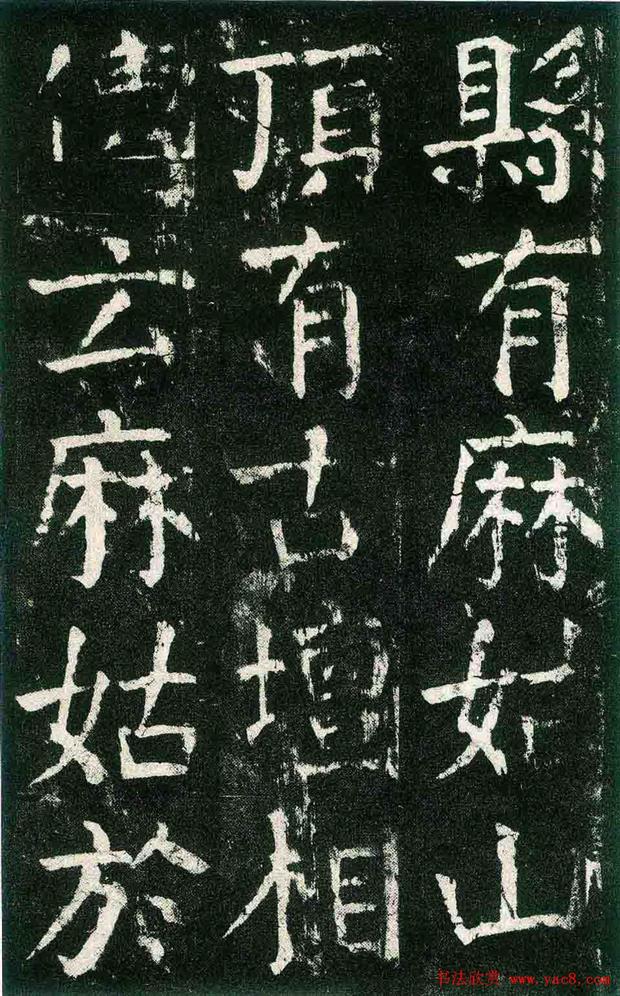 縣有麻姑山
頂有古壇相
傳云麻姑於
书法欣赏 www.yac8.com